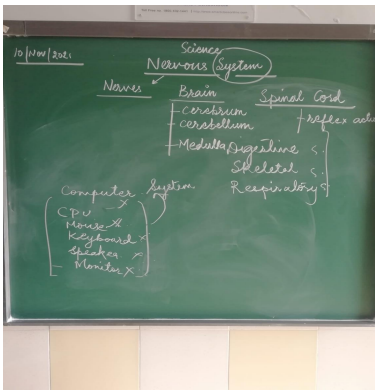 10/Nov/2021
Science
Nervous System
Nerves
Brain
Cerebrum
Cerebellum
Medulla
Spinal Cord
reflex acti
Digestive
Skeletal
Respiratory
Computer System
CPU
Mouse
Keyboard
Speaker
Monitor